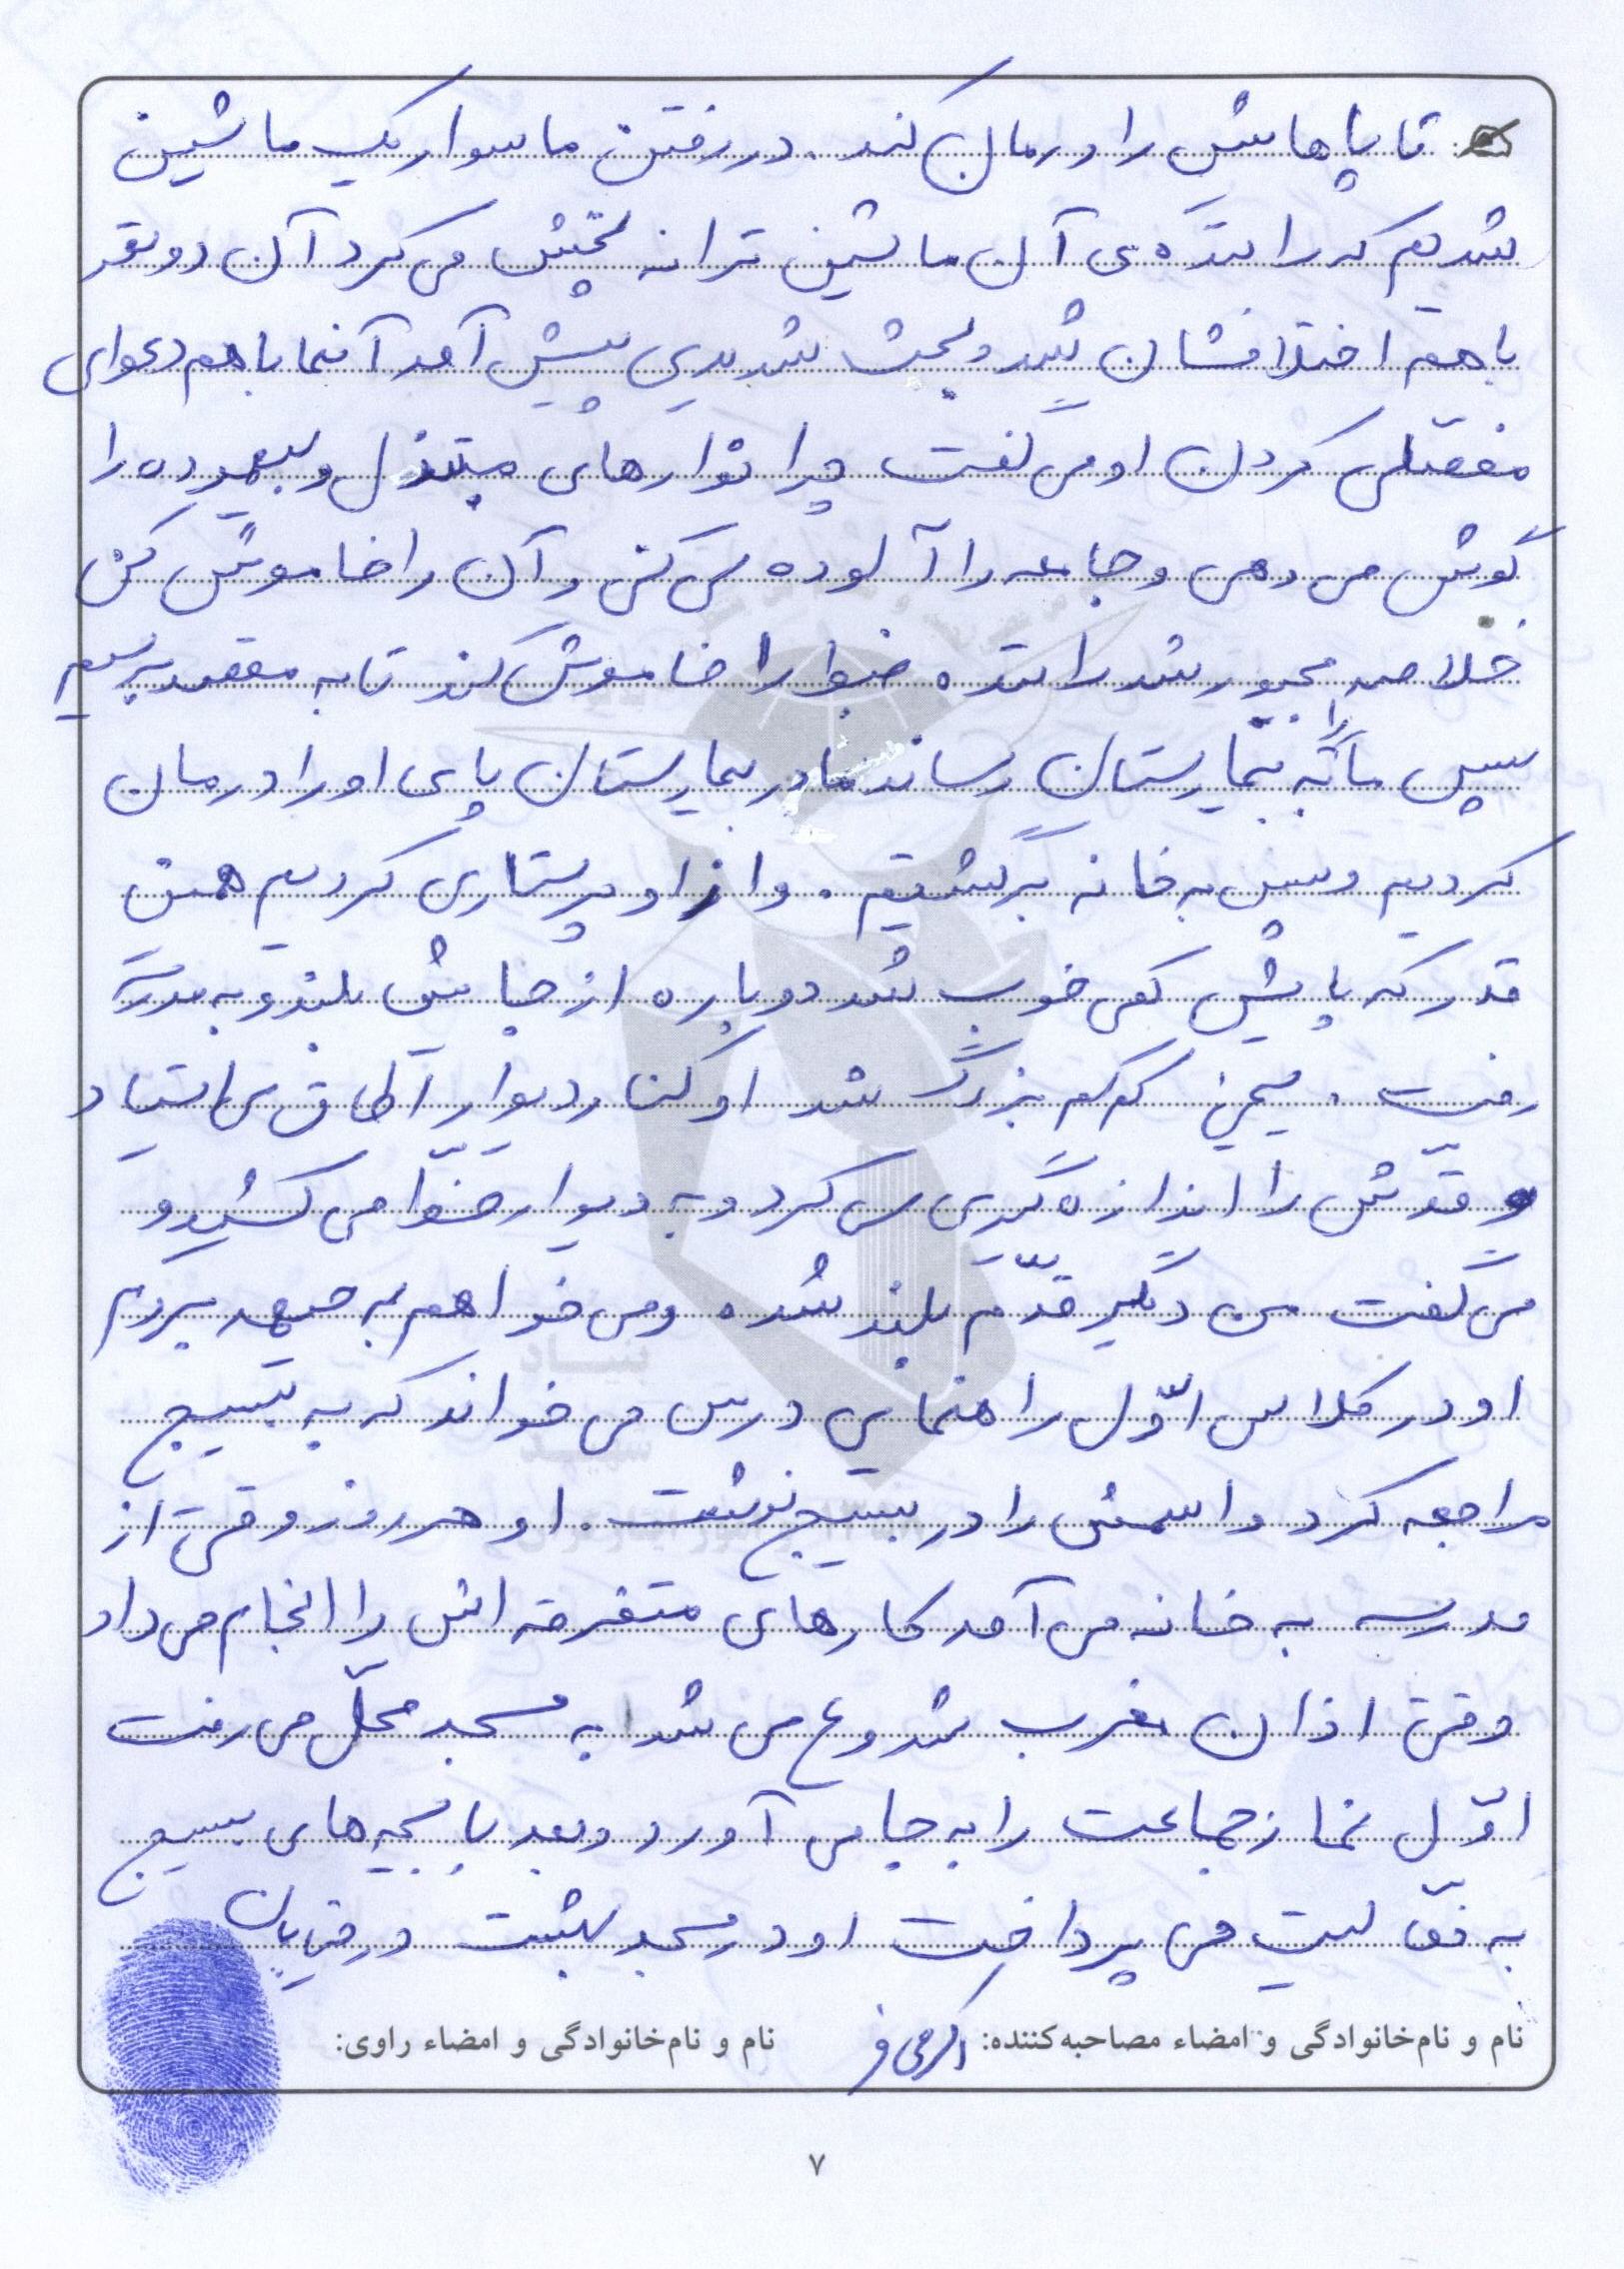 تا پاهایش را درمان کند. در رفتن ما سوار یک ماشین
شدیم که راننده ی آن ماشین ترانه پخش می کرد آن دو نفر
با هم اختلافشان شد و بحث شدیدی پیش آمد آنها با هم دعوای
مفصّلی کردن او می گفت چرا نوارهای مبتذل و بیهوده را
گوش می دهی و جامعه را آلوده می کنی و آن را خاموش کن
خلاصه مجبور شد راننده ضبط را خاموش کند تا به مقصد برسیم
سپس ما را به بیمارستان رساند ما در بیمارستان پای او را درمان
کردیم و سپس به خانه برگشتیم. و از او پرستاری کردیم همین
قدر که پایش کمی خوب شد دوباره از جایش بلند و به مدرسه
رفت. یحیی کم کم بزرگ شد او کنار دیوار اطاق می ایستاد
و قدّش را اندازه گیری می کرد و به دیوار خط می کشید و
می گفت من دیگر قدّم بلند شده و می خواهم به جبهه بروم
او در کلاس اوّل راهنمایی درس می خواند که به بسیج
مراجعه کرد و اسمش را در بسیج نوشت. او هر روز وقتی از
مدرسه به خانه می آمد کارهای متفرقه اش را انجام می داد
وقتی اذان مغرب شروع می شد به مسجد محلّ می رفت
اوّل نماز جماعت را به جای آورد و بعد با بچه های بسیج
به فعّالیت می پرداخت او در مسجد
نام و نام‌خانوادگی و امضاء مصاحبه‌کننده: نام و نام‌خانوادگی و امضاء راوی:
۷